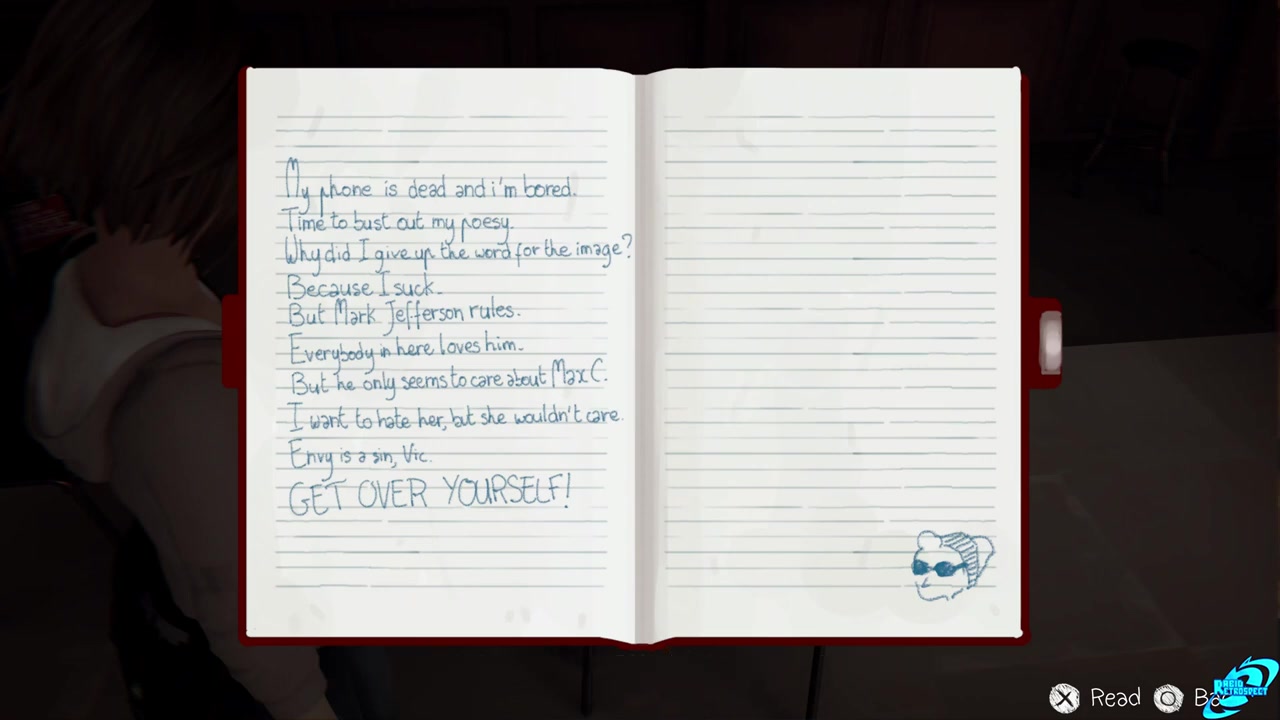 My phone is dead and i'm bored.
Time to bust out my poesy.
Why did I give up the word for the image?
Because I suck.
But Mark Jefferson rules.
Everybody in here loves him.
But he only seems to care about Max C.
I want to hate her, but she wouldn't care.
Envy is a sin, Vic.
GET OVER YOURSELF!
Read
RETROSPECT